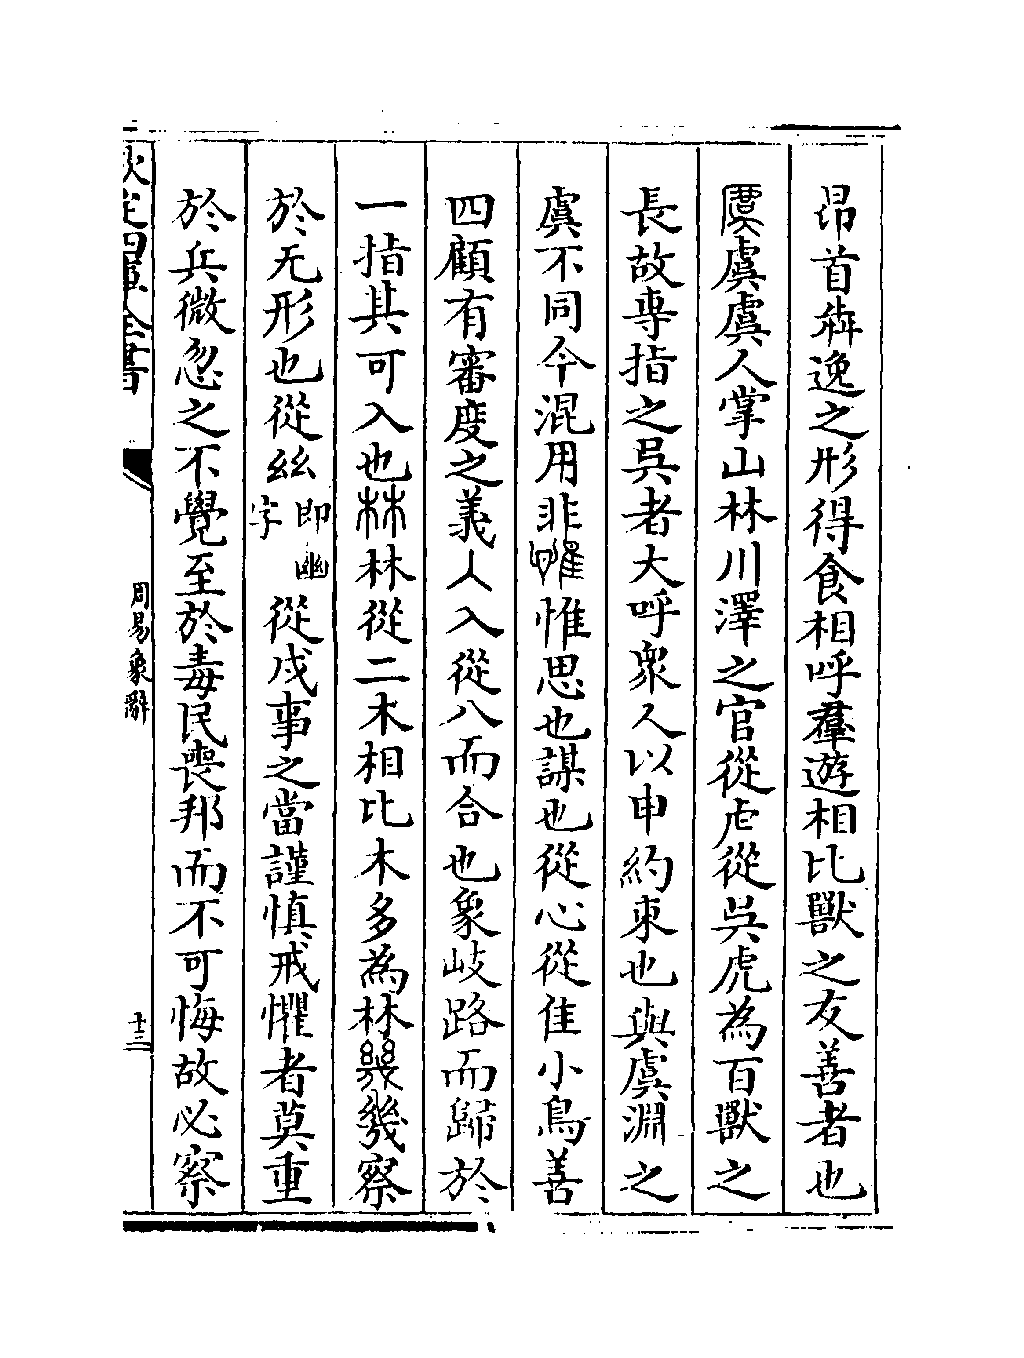 昂首犇逸之形得食相呼羣遊相比獸之友善者也
虞虞虞人掌山林川澤之官從虍從吳虎為百獸之
長故専指之吳者大呼衆人以申約束也與虞淵之
虞不同今混用非惟惟思也謀也從心從隹小鳥善
四顧有審度之義入入從八而合也象岐路而歸於
一指其可入也林林從二木相比木多為林幾幾察
於无形也從𢆶即幽字從戍事之當謹慎戒懼者莫重
於兵微忽之不覺至於毒民喪邦而不可悔故必察
欽定四庫全書
周易象辭
十三